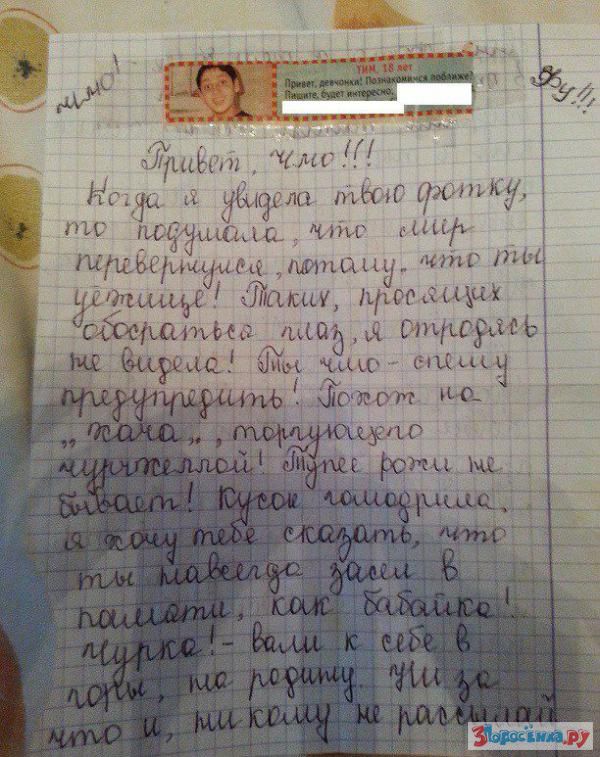 чмо!
фу!!!
ТИМ, 18 лет
Привет, девчонки! Познакомимся поближе?
Пишите, будет интересно,
Привет, чмо!!!
Когда я увидела твою фотку,
то подумала, что мир
перевернулся, потому, что ты
уёжище! Таких, просящих
обосраться глаз, я отродясь
не видела! Ты чмо - спешу
предупредить! Похож на
„хача„, торгующего
чурчхеллой! Тупее рожи не
бывает! Кусок гомодрила,
я хочу тебе сказать, что
ты навсегда засел в
памяти, как бабайка!
Чурка! - вали к себе в
горы, на родину. Ни за
что и, никому не рассылай
3Поросёнка.ру